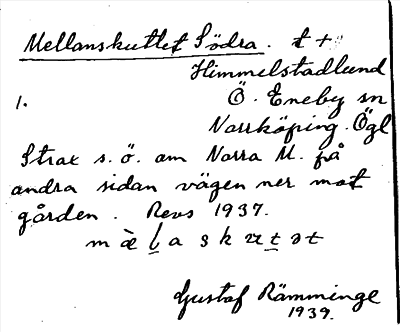 Mellanskuttet Södra. t +
Himmelstadlund
1. Ö. Eneby sn
Norrköping. Ögl
Strax s. ö. om Norra M. på
andra sidan vägen ner mot
gården. Revs 1937.
Gustaf Rämminge
1939.